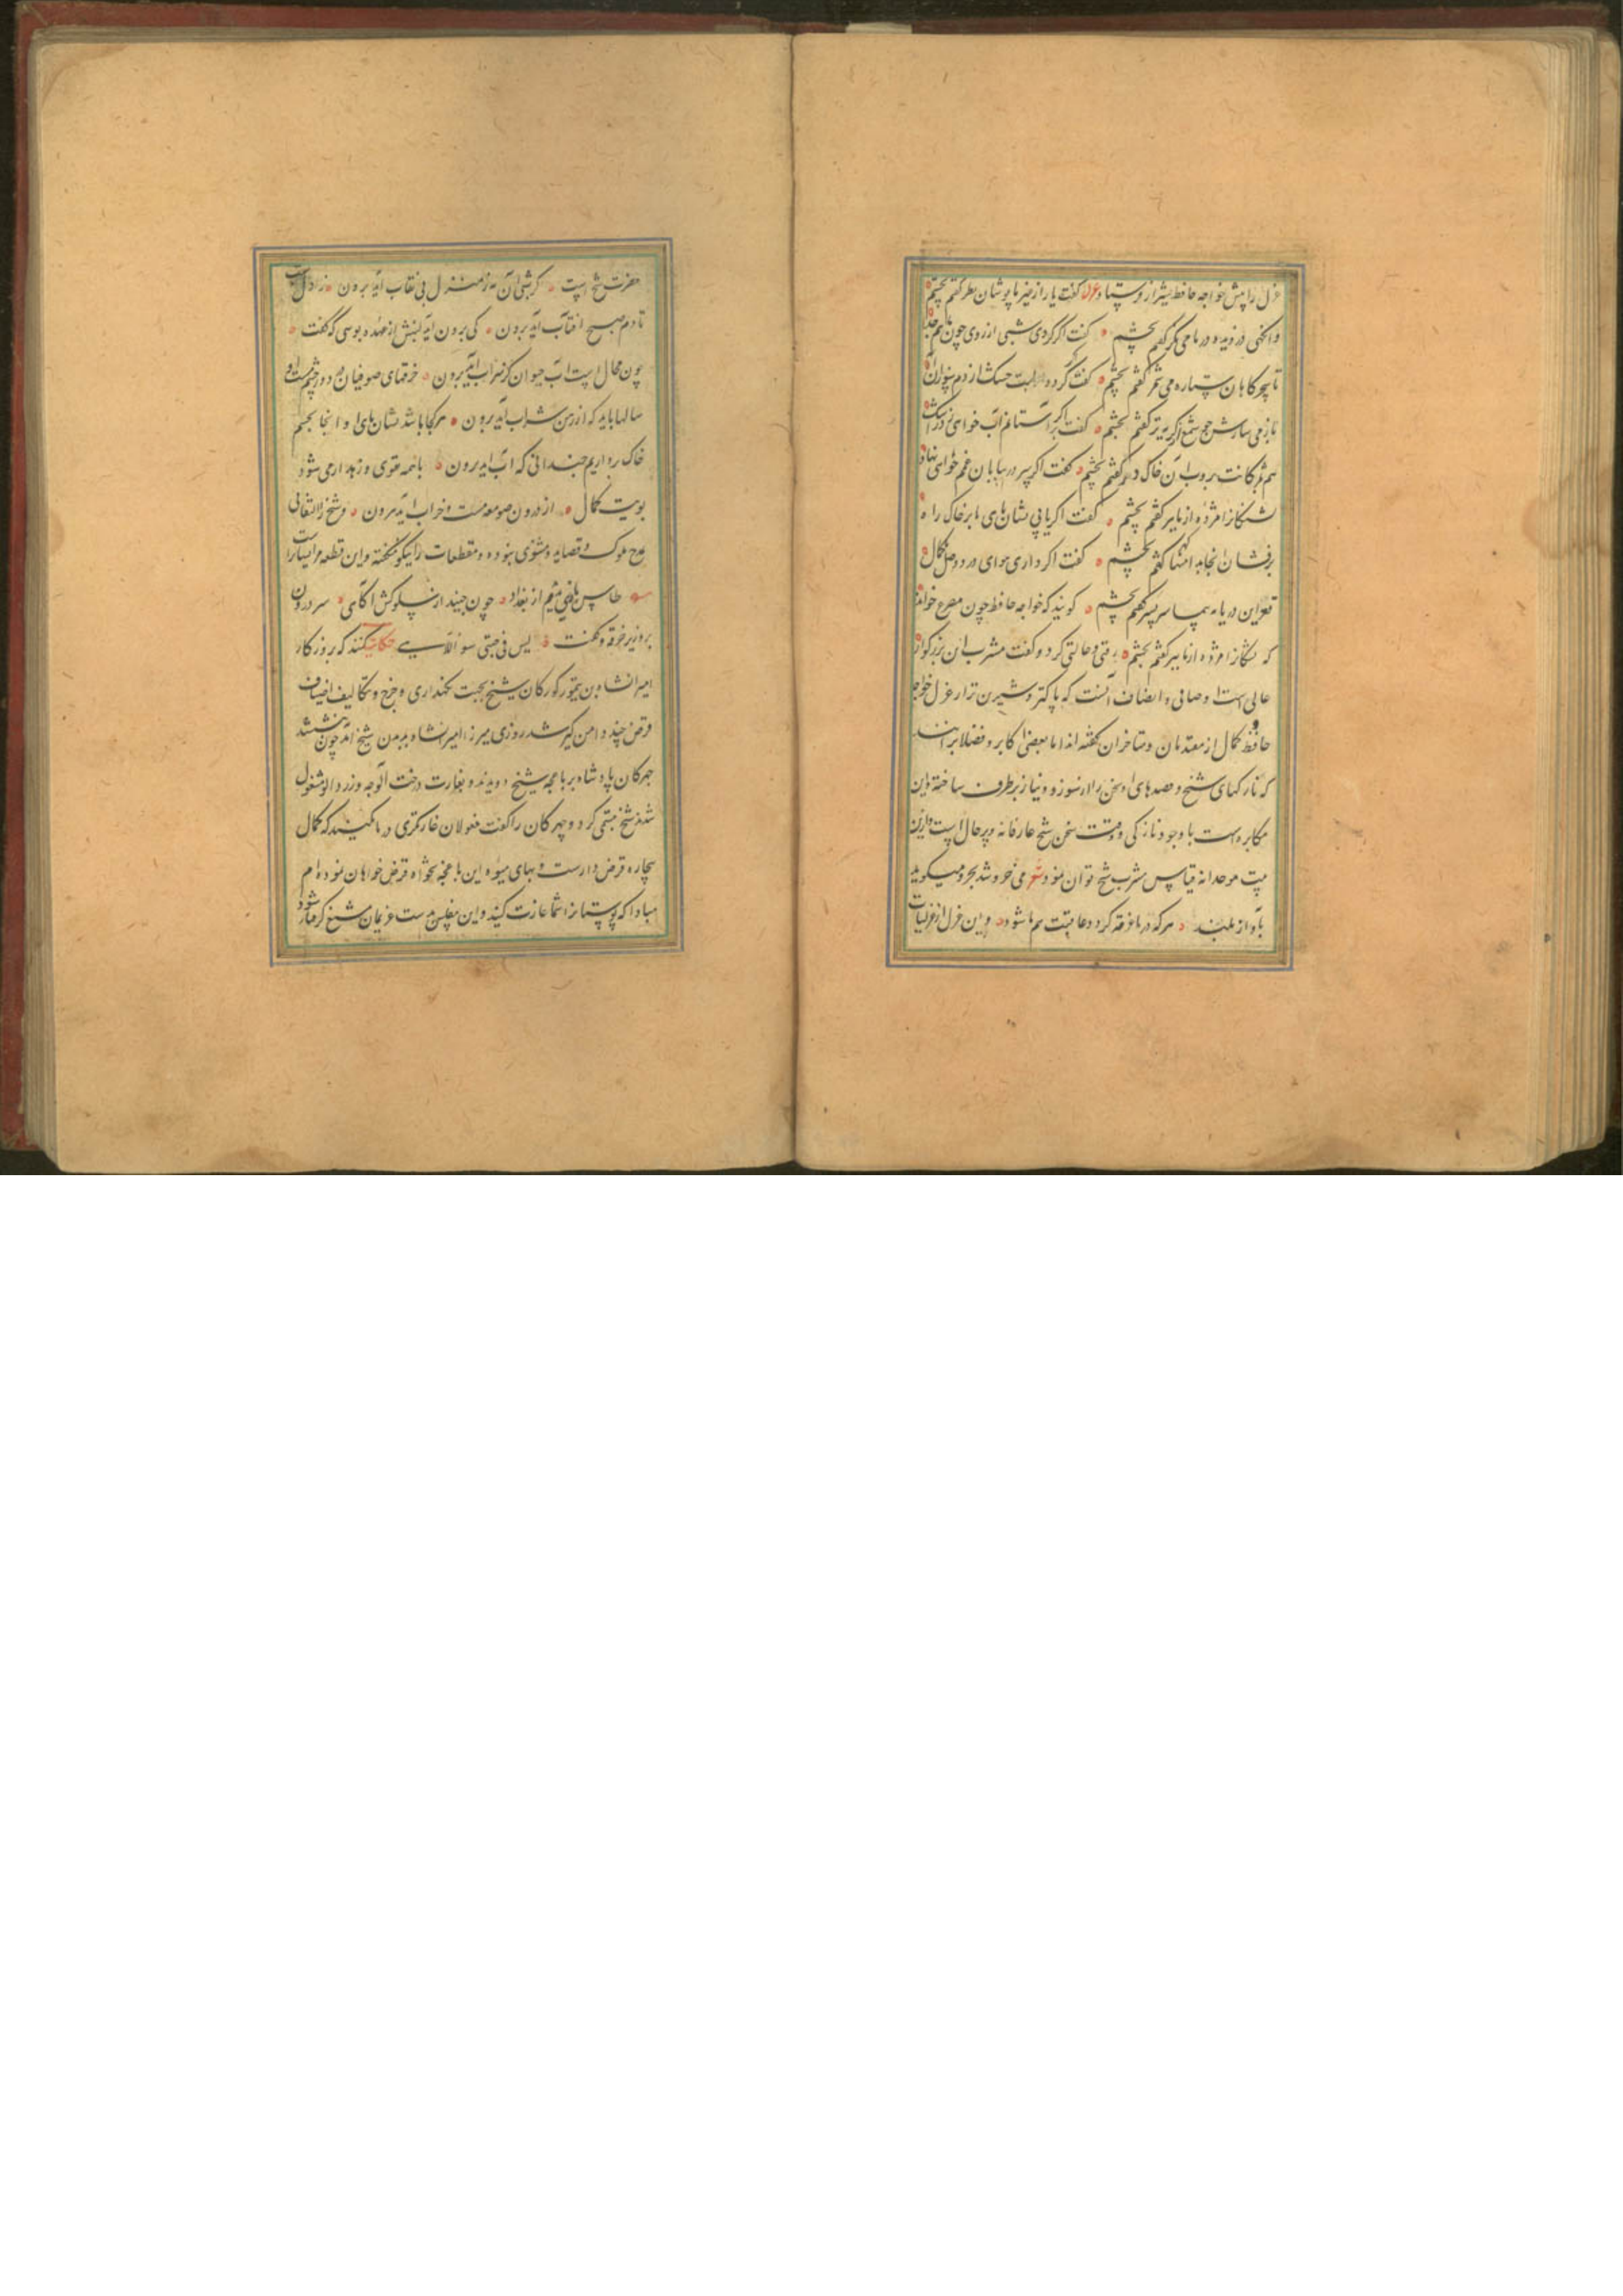 غزل را پیش خواجه حافظ بشیراز فرستاد غزل گفت یار از غیر ما پوشان نظر گفتم بچشم
وانگهی دزدیده در ما می نگر گفتم بچشم گفت اگر گردی شبی از روی چون ماهم جدا
تا سحرگاهان ستاره می شمر گفتم بچشم گفت اگر گردد لبت خشک از دم سوزان آه
باز می سازش چو شمع از گریه تر گفتم بچشم گفت اگر بر آستانم آب خواهی زد ز اشک
هم بمژگانت بروب آن خاک در گفتم بچشم گفت اگر سر در بیابان غم خواهی نهاد
تشنگانرا مژده از ما بر گفتم بچشم گفت اگر یابی نشان پای ما بر خاک راه
برفشان انجا بدامنها گهر گفتم بچشم گفت اگر داری هوای درد وصل ما کمال
قعر این دریا بپیما سر بسر گفتم بچشم گویند که خواجه حافظ چون مصرع خواند
که تشنگانرا مژده از ما بر گفتم بچشم رقتی و حالتی کرد و گفت مشرب این بزرگوار
عالی است و صافی و انصاف آنست که پاکتر و شیرین تر از غزل خواجه
حافظ و کمال از متقدمان و متاخران نگفته اند اما بعضی اکابر و فضلا بر آنند
که نازکیهای شیخ و قصدهای او سخن را از سوز و نیاز برطرف ساخته و این
مکابره است با وجود نازکی و دقت سخن شیخ عارفانه و پر حال است و ازین
بیت موحدانه قیاس مشرب شیخ توان نمود شعر می خروشد بحر و میگوید
بآواز بلند هر که در ما غرقه گردد عاقبت هم ما شود و این غزل از غزلیات
حضرت شیخ است گر شبی آن مه ز منزل بی نقاب آید برون ز اول شب
تا دم صبح آفتاب آید برون کی برون آید لبش از عهده بوسی که گفت
چون محال است آب حیوان کز سراب آید برون خرقهای صوفیان در دور چشم مست او
سالها باید که از رهن شراب آید برون هر کجا باشد نشان پای او انجا بچشم
خاک برداریم چندانی که آب آید برون با همه تقوی و زهد ار می شود
بویت کمال از درون صومعه مست و خراب آید برون و شیخ را التفاتی
بمدح ملوک و قصاید و مثنوی نبوده و مقطعات را نیکو گفته و این قطعه مر او راست
طاس بازی بدیدم از بغداد چون جنید از سلوکش آگاهی سر درون
برد زیر خرقه و گفت لیس فی جبتی سوی اللهی حکایت کنند که بروزگار
امیرانشاه بن تیمور کورکان شیخ بجهت تکنداری و خرج و تکالیف اضیاف
قرض چند دامن گیر شد روزی میرزا امیرانشاه بدیدن شیخ آمد چون نشستند
چهرکان پادشاه بر باغچه شیخ دویدند و بغارت درخت آلوچه و زردآلو مشغول
شدند شیخ تبسمی کرد و چهرکان را گفت مغولان غارتگری در ما مکنید که کمال
بیچاره قرض دار است و بهای میوه این باغچه بتنخواه قرض خواهان نموده ام
مبادا که بوستانرا شما غارت کنید و این مفلس بدست غریمان شیخ گرفتار شود